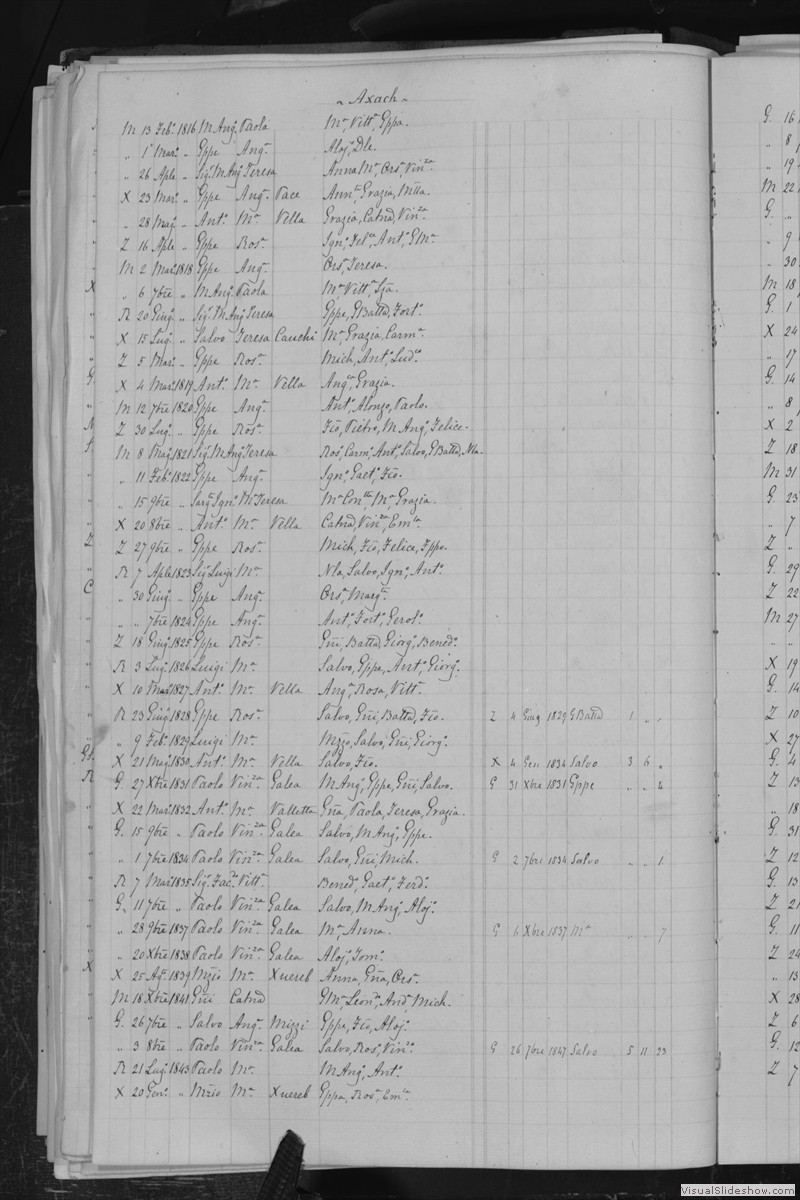 ~ Axach ~
M 13 Feb.º 1816 M Ang.ª Paola Mª, Vittª, Gppa.
„ 1º Marº „ Gppe Angª. Aloj, Dle.
„ 26 Aple „ Sigº M Angº Teresa Anna Mª, Orsª, Vinᶻᵃ.
X 23 Marº „ Gppe Angª. Pace Annᵗᵃ, Grazia, Mtta.
„ 28 Magº „ Antº Mª Vella Grazia, Catnd, Vinᶻᵃ.
Z 16 Aple „ Gppe Rosª Ignº, Felᶜᵉ, Antº, G Mª.
M 2 Marº 1818 Gppe Angª. Orsª, Teresa.
X „ 6 7bre „ M Angº Paola Mª, Vittª
R 20 Giugº „ Sigº M Angº Teresa Gppe, G Batta, Fortº.
X 15 Lugº „ Salvo Teresa Cauchi Mª, Grazia, Carmª.
Z 5 Marº „ Gppe Rosª Mich, Antº, Ludᶜᵒ
G X 4 Marº 1819 Antº Mª Vella Angᶜᵃ, Grazia.
M 12 7bre 1820 Gppe Angª. Antº, Alonzo, Paolo.
Z 30 Lugº „ Gppe Rosª Fco, Pietro, M Angº, Felice.
M 8 Magº 1821 Sigº M Angº Teresa Rosº, Carmº, Antº, Salvo, G Batta, Nla.
„ 11 Febº 1822 Gppe Angª. Ignº, Gaetº, Fco.
„ 15 9bre „ Sargº Ignº Mª Teresa Mª Conᵗᵗᵃ, Mª, Grazia.
„ X 20 8bre „ Antº Mª Vella Catnd, Vinᶻᵃ, Emᶜᵃ.
Z Z 27 9bre „ Gppe Rosª Mich, Fco, Felice, Fppo.
„ R 7 Aple 1823 Sigº Luigi Mª Nla, Salvo, Ignº, Antº.
C „ 30 Giugº „ Gppe Angª. Orsª, Margᵗᵃ.
„ „ „ 7bre 1824 Gppe Angª. Antº, Fortº, Gerolº.
„ Z 18 Giugº 1825 Gppe Rosª Gni, Batta, Giorgº, Benedº.
„ R 3 Lugº 1826 Luigi Mª Salvo, Gppe, Antº, Giorgº.
„ X 10 Marº 1827 Antº Mª Vella Angª, Rosa, Vittª.
„ R 23 Giugº 1828 Gppe Rosª Salvo, Gni, Batta, Fco. Z 4 Giug 1829 G Batta 1 „ „
„ „ 9 Febº 1829 Luigi Mª Mzzio, Salvo, Gni, Giorgº.
X 21 Magº 1830 Antº Mª Vella Salvo, Fco. X 4 Gen 1834 Salvo 3 6 „
R G. 27 Xbre 1831 Paolo Vinᶻᵃ Galea M Angº, Gppe, Gni, Salvo. G 31 Xbre 1831 Gppe „ „ 4
„ X 22 Marº 1832 Antº Mª Valletta Gna, Paola, Teresa, Grazia.
„ G. 15 9bre „ Paolo Vinᶻᵃ Galea Salvo, M Angº, Gppe.
„ „ 1 7bre 1834 Paolo Vinᶻᵃ Galea Salvo, Gni, Mich. G 2 7bre 1834 Salvo „ „ 1
„ R 7 Marº 1835 Sigº Vittª Benedº, Gaetº, Ferdº.
„ G. 11 7bre „ Paolo Vinᶻᵃ Galea Salvo, M Angº, Aloj.
„ „ 28 9bre 1837 Paolo Vinᶻᵃ Galea Mª Anna. G 6 Xbre 1837 Mª „ „ 7
„ „ 20 Xbre 1838 Paolo Vinᶻᵃ Galea Aloj, Tomº.
X X 25 Agº 1839 Mzio Mª Xuereb Anna, Gna, Orsª.
M 18 Xbre 1841 Gni Catnd G Mª, Leonº, Andª, Mich.
G. 26 7bre „ Salvo Angª Mizzi Gppe, Fco, Aloj.
„ 3 8bre „ Paolo Vinᶻᵃ Galea Salvo, Rosº, Vinᶻº. G 26 7bre 1847 Salvo 5 11 23
R 21 Lugº 1843 Paolo Mª M Angº, Antº.
X 20 Genº „ Mzio Mª Xuereb Gppa, Rosª, Emᶜᵃ.
G. 16
„ 8
„ 19
M 22
G. „
„ 9
„ 30
M 18
G. 1
X 24
„ 17
G. 14
„ 8
X 2
Z 18
M 31
G. 23
„ 7
Z „
G. 29
Z 22
M 27
„ „
X 19
G. 14
Z 10
X 27
G. 4
Z 13
„ 18
G. 31
Z 12
G. 13
Z 21
G. 11
Z 24
„ 13
X 28
Z 6
G. 12
Z 7
VisualSlideshow.com